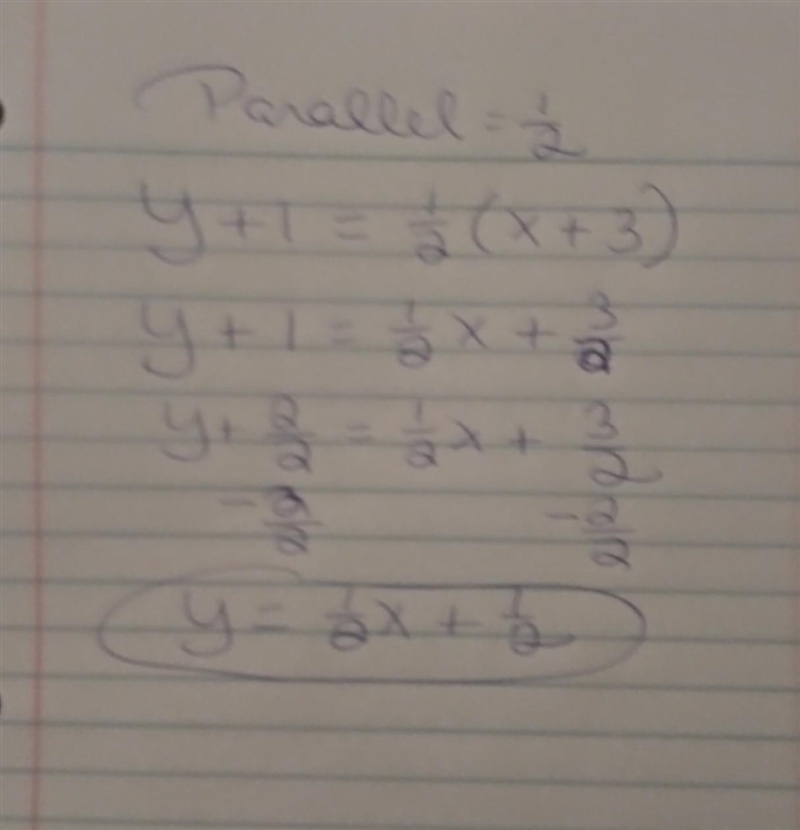 Parallel = 1/2
y + 1 = 1/2 (x + 3)
y + 1 = 1/2 x + 3/2
y + 2/2 = 1/2 x + 3/2
- 2/2 - 2/2
y = 1/2 x + 1/2